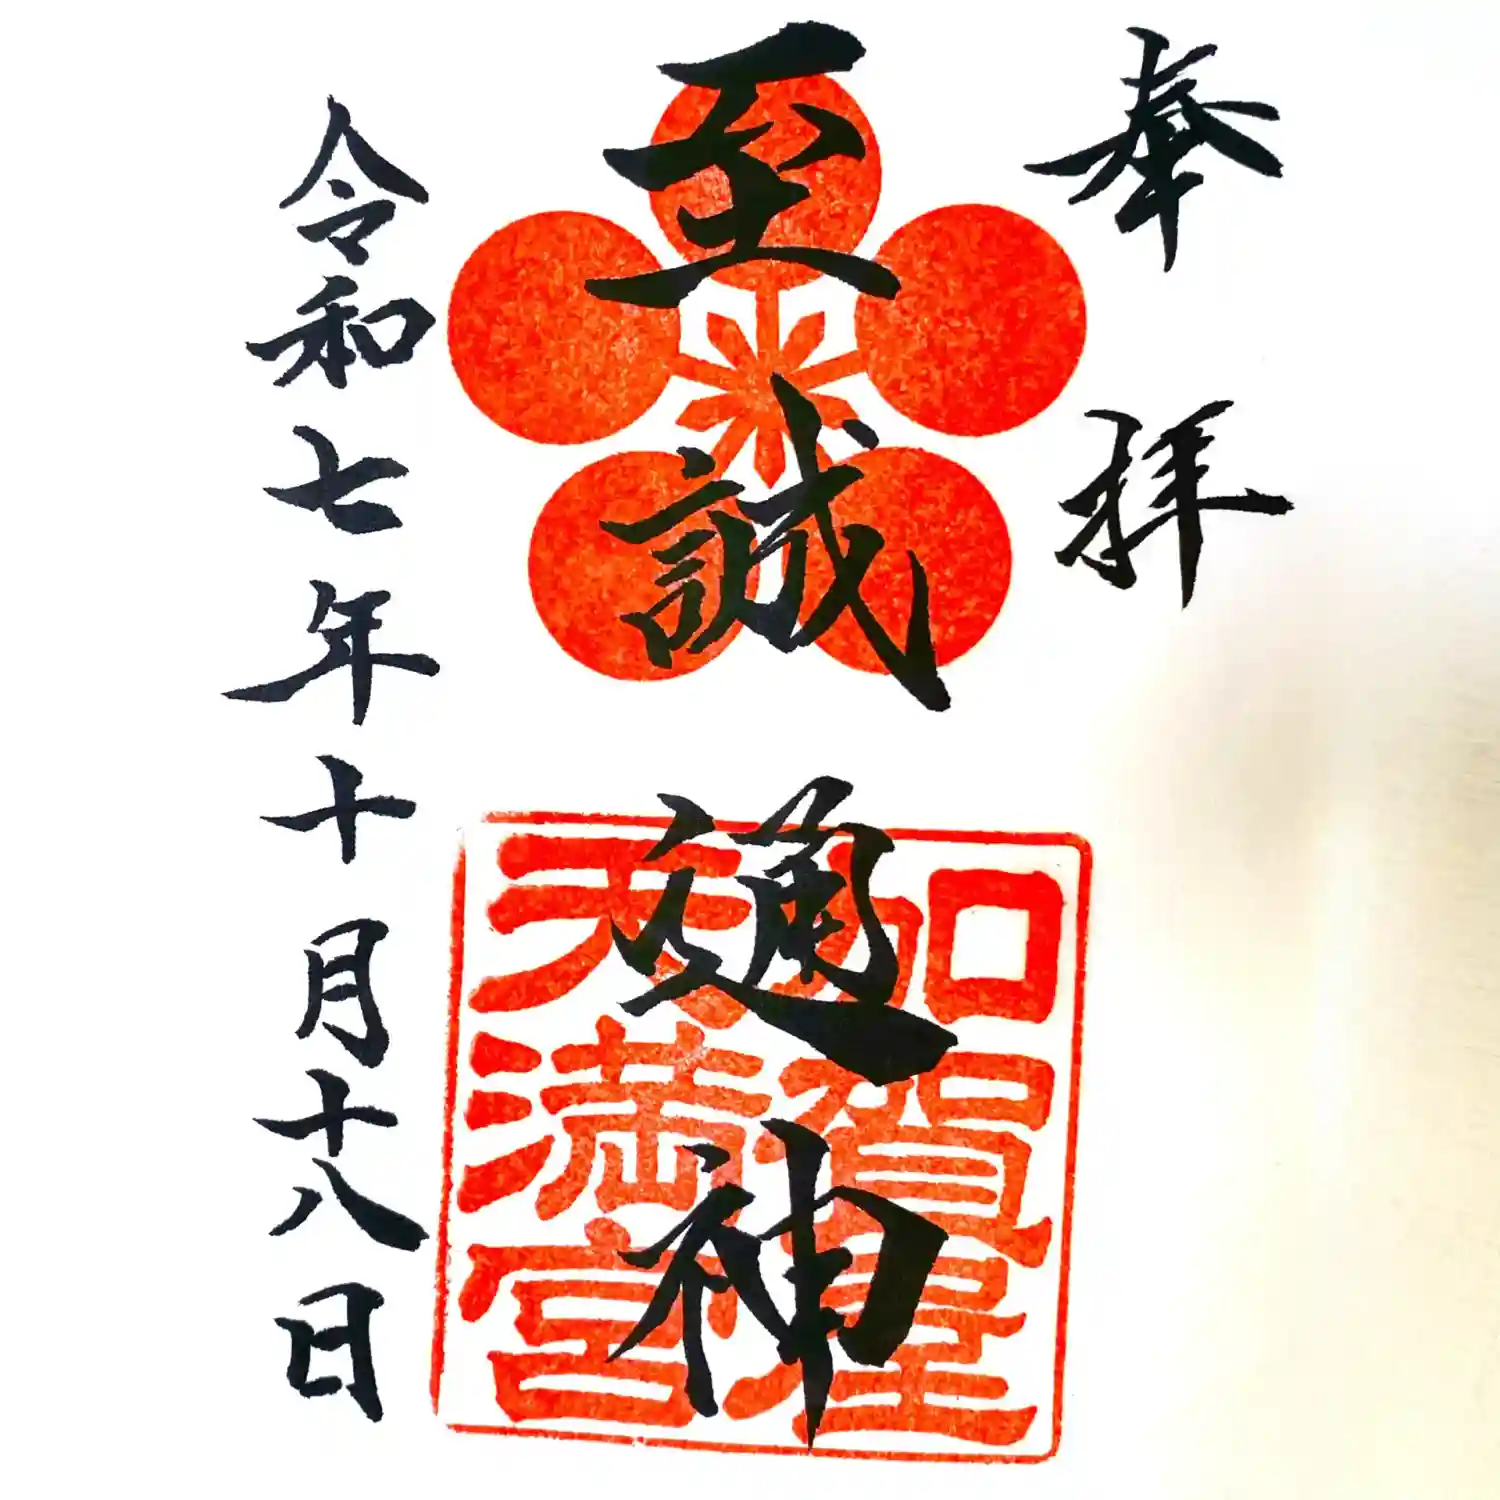 奉拝
至誠通神
加賀星
天満宮
令和七年十月十八日